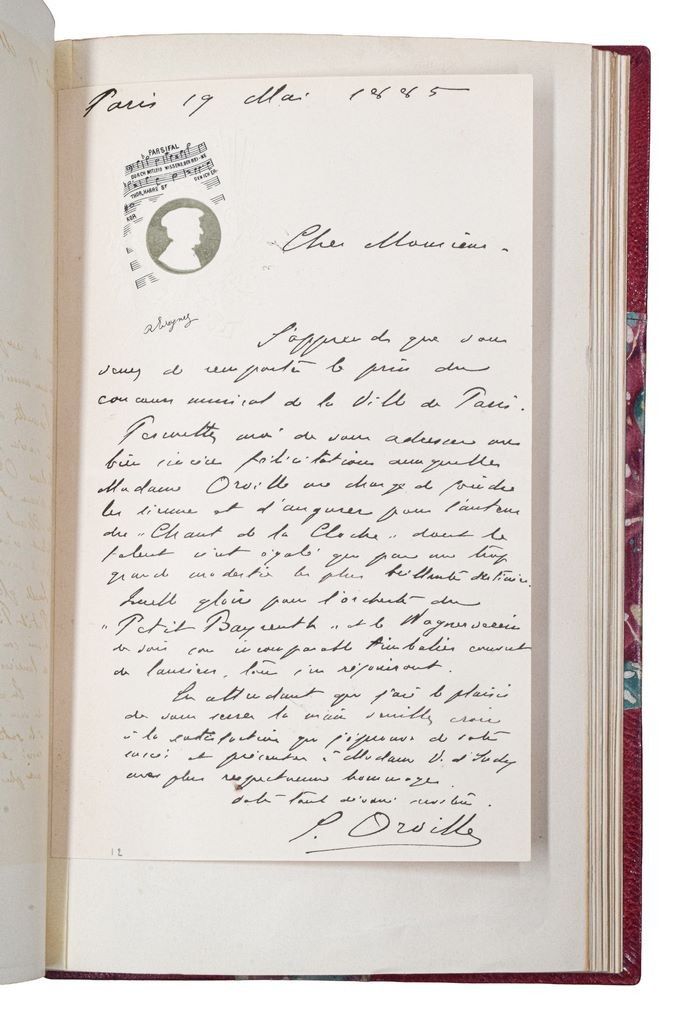 Paris 19 Mai 1885
PARSIFAL
DURCH MITLEID WISSEND, DER REI-NE
THOR, HARRE SEIN ICH ER-
KOR
Cher Monsieur.
J'apprends que vous
venez de remporter le prix du
concours musical de la Ville de Paris.
Permettez moi de vous adresser mes
bien sincères félicitations auxquelles
Madame Orville me charge de joindre
les siennes et d'augurer pour l'auteur
du "Chant de la Cloche" dont le
talent n'est égalé que par une trop
grande modestie la plus brillante destinée.
Quelle gloire pour l'orchestre du
"Petit Bayreuth" et le Wagnerverein
de voir son incomparable timbalier couvert
de lauriers, tous s'en réjouiront.
En attendant que j'aie le plaisir
de vous serrer la main veuillez croire
à la satisfaction que j'éprouve de votre
succès et présenter à Madame V. d'Indy
mes plus respectueux hommages.
votre tout dévoué
P. Orville
12